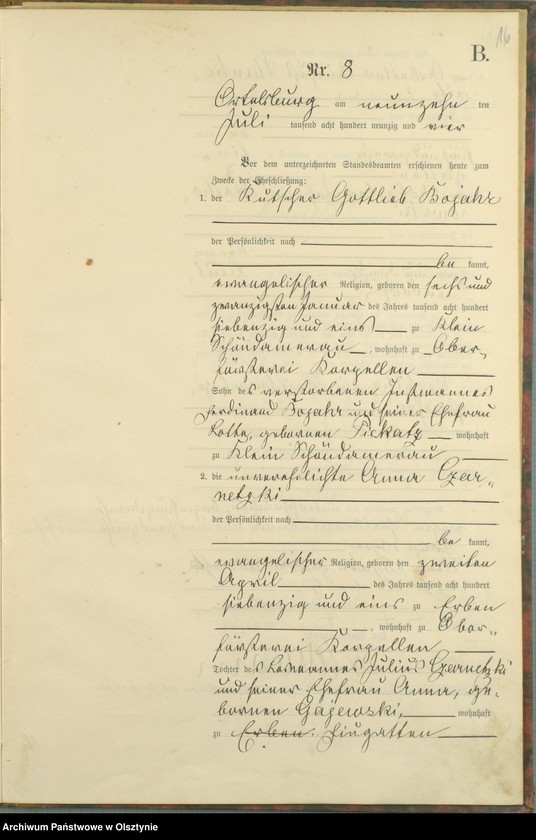 16
B.
Nr. 8
Ortelsburg am neunzehn ten
Juli tausend acht hundert neunzig und vier
Vor dem unterzeichneten Standesbeamten erschienen heute zum
Zwecke der Eheschließung:
1. der Kutscher Gottlieb Bojahr
der Persönlichkeit nach
be kannt,
evangelischer Religion, geboren den sechs und
zwanzigsten Januar des Jahres tausend acht hundert
siebenzig und eins zu Klein
Schöndamerau, wohnhaft zu Ober-
försterei Korpellen
Sohn des verstorbenen Instmannes
Ferdinand Bojahr und seiner Ehefrau
Lotte, gebornen Pickatz wohnhaft
zu Klein Schöndamerau
2. die unverehelichte Anna Czar-
netzki
der Persönlichkeit nach
be kannt,
evangelischer Religion, geboren den zweiten
April des Jahres tausend acht hundert
siebenzig und eins zu Erben
, wohnhaft zu Ober-
försterei Korpellen
Tochter des Losmannes Julius Czarnetzki
und seiner Ehefrau Anna, ge-
bornen Gajewski, wohnhaft
zu Erben. Fiugatten
Archiwum Państwowe w Olsztynie